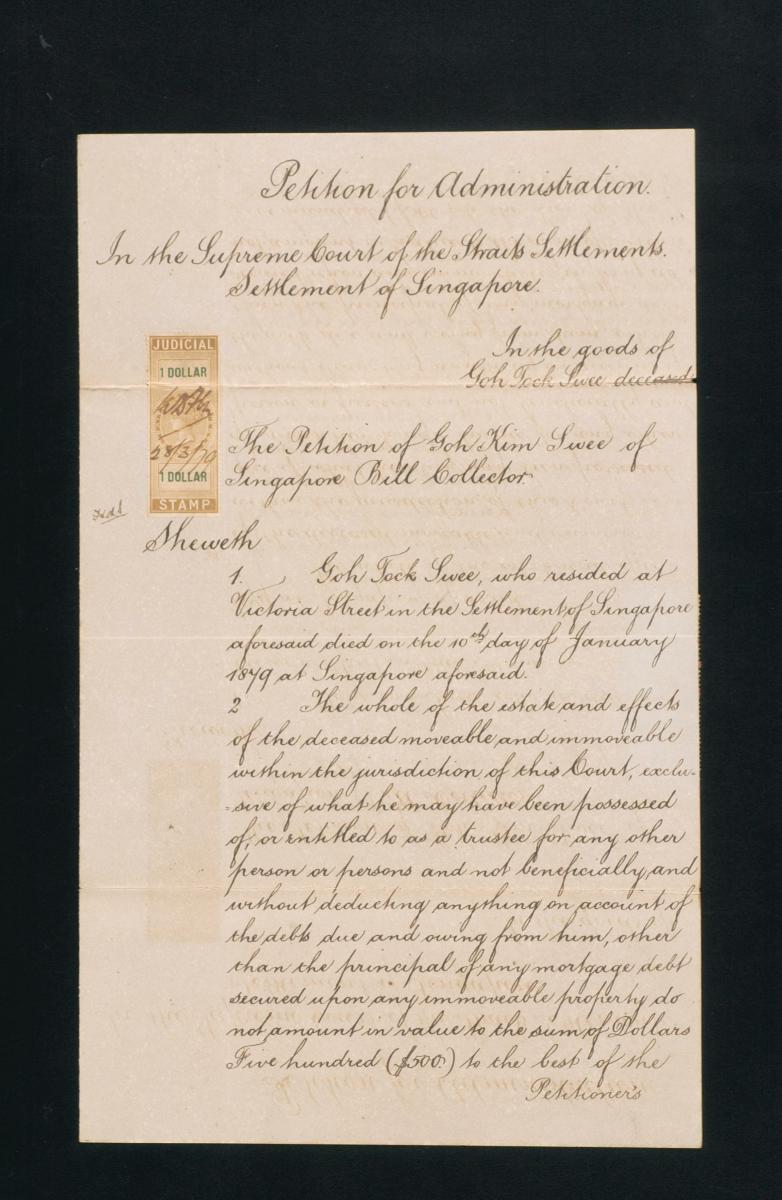 Petition for Administration.
In the Supreme Court of the Straits Settlements.
Settlement of Singapore.
In the goods of
Goh Tock Swee deceased
JUDICIAL
1 DOLLAR
28/3/79
1 DOLLAR
STAMP
The Petition of Goh Kim Swee of
Singapore Bill Collector
Sheweth
1. Goh Tock Swee, who resided at
Victoria Street in the Settlement of Singapore
aforesaid died on the 10th day of January
1879 at Singapore aforesaid.
2 The whole of the estate and effects
of the deceased moveable and immoveable
within the jurisdiction of this Court, exclu-
=sive of what he may have been possessed
of, or entitled to as a trustee for any other
person or persons and not beneficially, and
without deducting anything on account of
the debts due and owing from him, other
than the principal of any mortgage debt
secured upon any immoveable property do
not amount in value to the sum of Dollars
Five hundred ($500.) to the best of the
Petitioner's